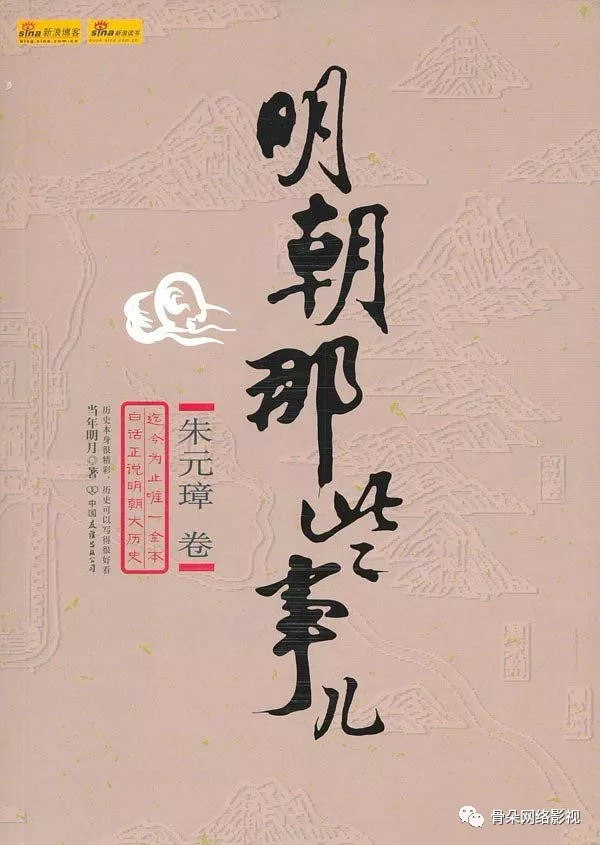 sina 新浪博客
blog.sina.com.cn
sina 新浪读书
book.sina.com.cn
明朝那些事儿
朱元璋 卷
迄今为止唯一全本
白话正说明朝大历史
历史本身很精彩,历史可以写得很好看
当年明月◎著
中国友谊出版公司
骨朵网络影视